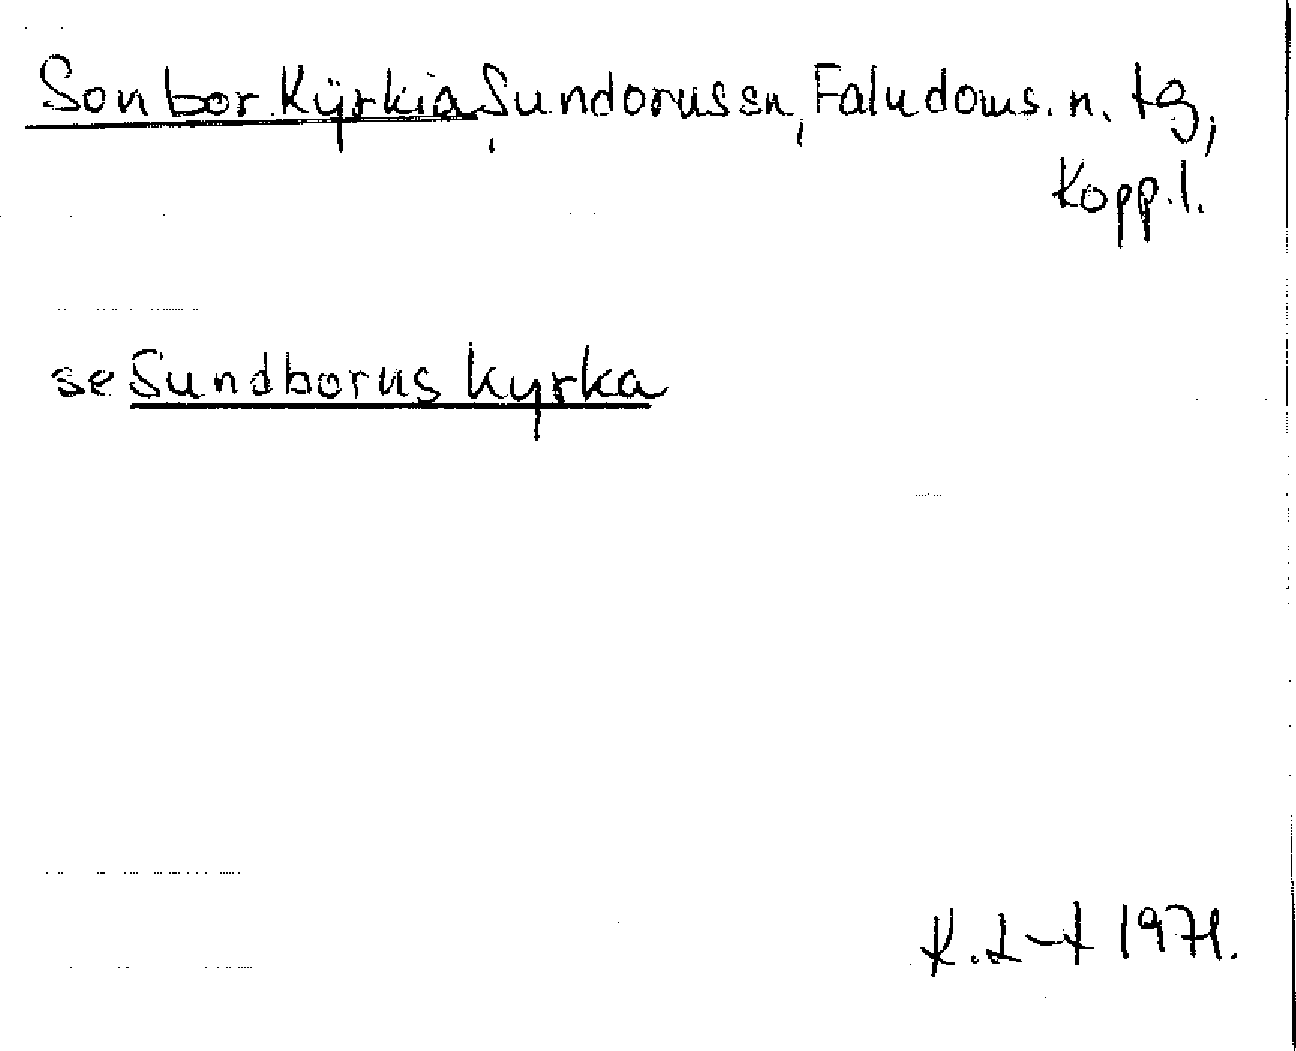 Sonbor Kÿrkia, Sundborns sn, Falu doms. n. tg,
Kopp.l.
se Sundborns kyrka
K. L-t 1971.